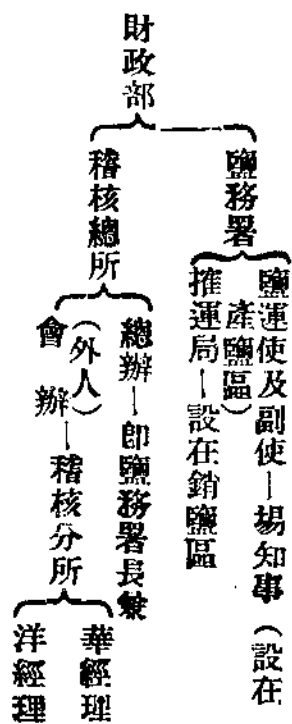 財政部
鹽務署
鹽運使及副使—場知事（設在
產鹽區）
搉運局—設在銷鹽區
稽核總所
總辦—即鹽務署長兼
（外人）
會辦—稽核分所
華經理
洋經理